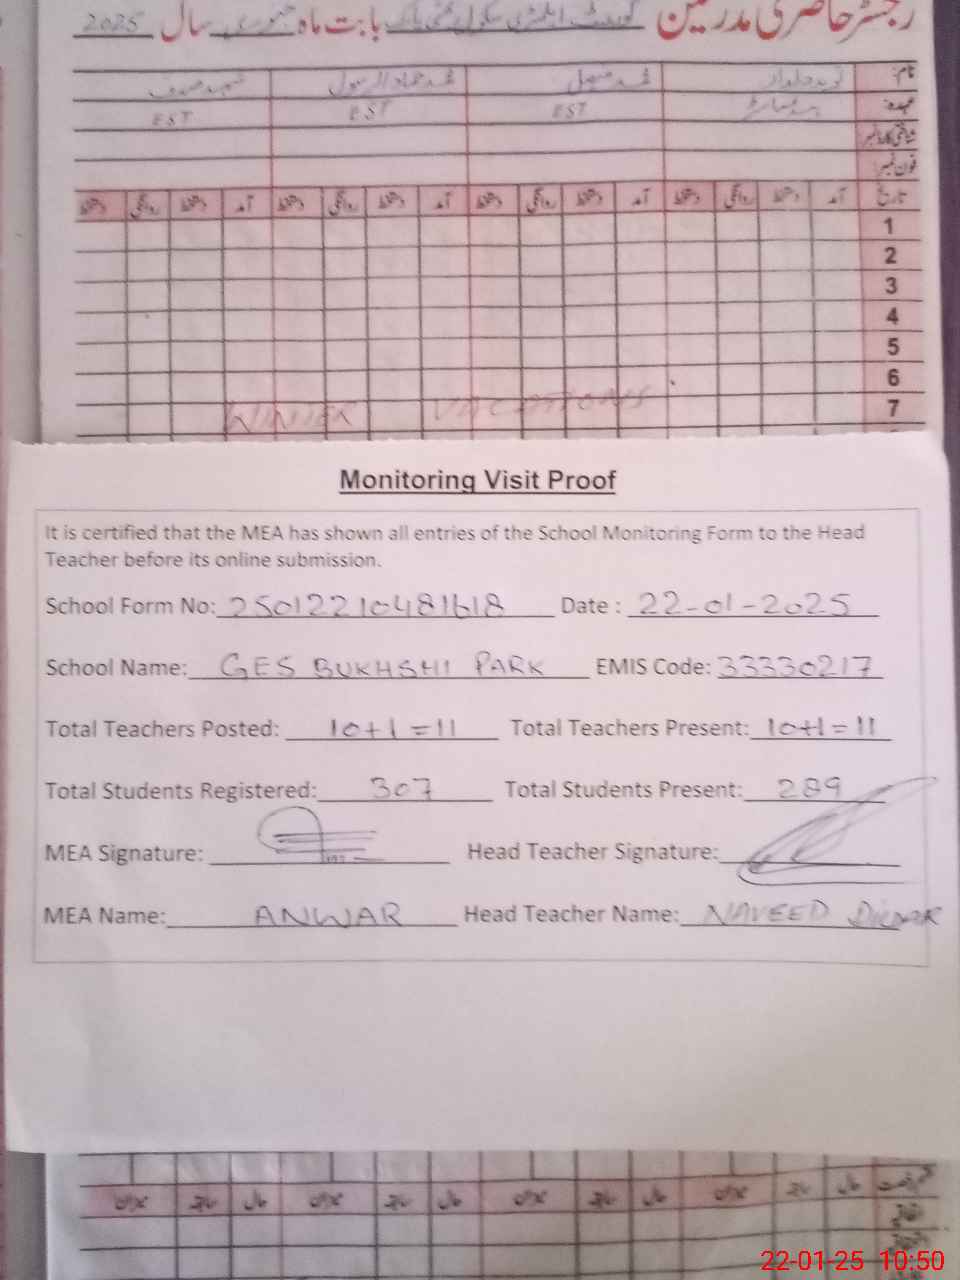 رجسٹر حاضری مدرسین گورنمنٹ ایلیمنٹری سکول بخشی پارک بابت ماہ جنوری سال 2025
نام: نوید دلدار محمد فیصل
عہدہ: EST EST EST
شناختی کارڈ نمبر
فون نمبر:
تاریخ آمد دستخط روانگی دستخط آمد دستخط روانگی دستخط آمد دستخط روانگی دستخط آمد دستخط روانگی دستخط
1
2
3
4
5
6
7
WINTER VACATIONS
Monitoring Visit Proof
It is certified that the MEA has shown all entries of the School Monitoring Form to the Head
Teacher before its online submission.
School Form No: 25012210481618 Date : 22-01-2025
School Name: GES BUKHSHI PARK EMIS Code: 33330217
Total Teachers Posted: 10+1=11 Total Teachers Present: 10+1=11
Total Students Registered: 307 Total Students Present: 289
MEA Signature: Head Teacher Signature:
MEA Name: ANWAR Head Teacher Name: NAVEED DILDAR
حال سابقہ میزان حال سابقہ میزان حال سابقہ میزان حال سابقہ میزان
اتفاقی
22-01-25 10:50